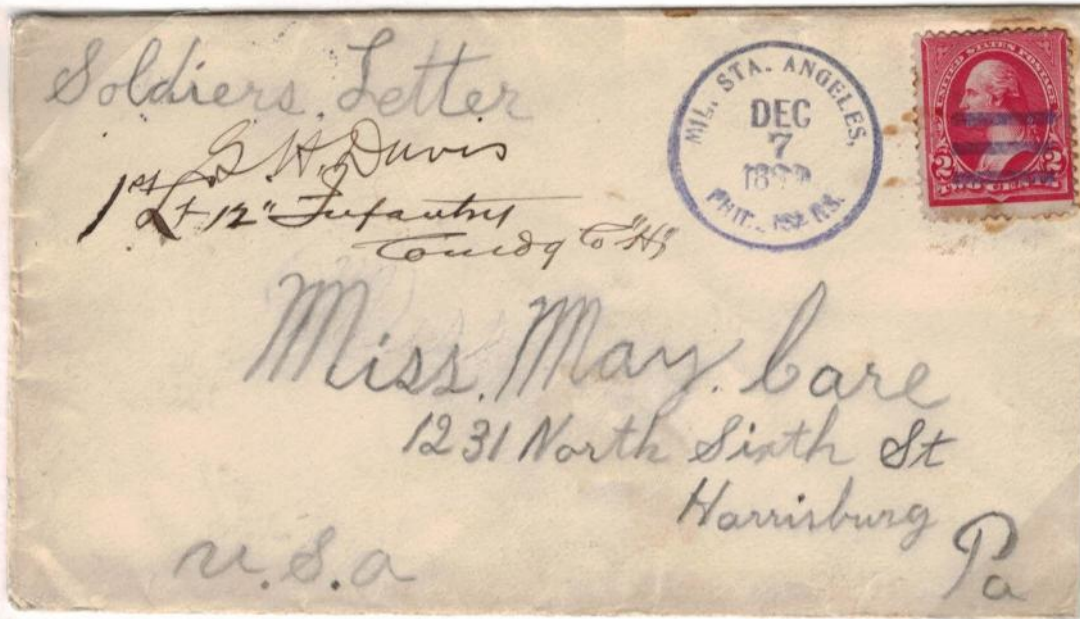 Soldiers. Letter
G. H. Davis
1st Lt 12" Infantry
Comdg Co "H"
MIL. STA. ANGELES,
DEC
7
PHIL. ISL'RS.
UNITED STATES POSTAGE
2 2
TWO CENTS
Miss. May. Care
1231 North Sixth St
Harrisburg
Pa
U.S.a